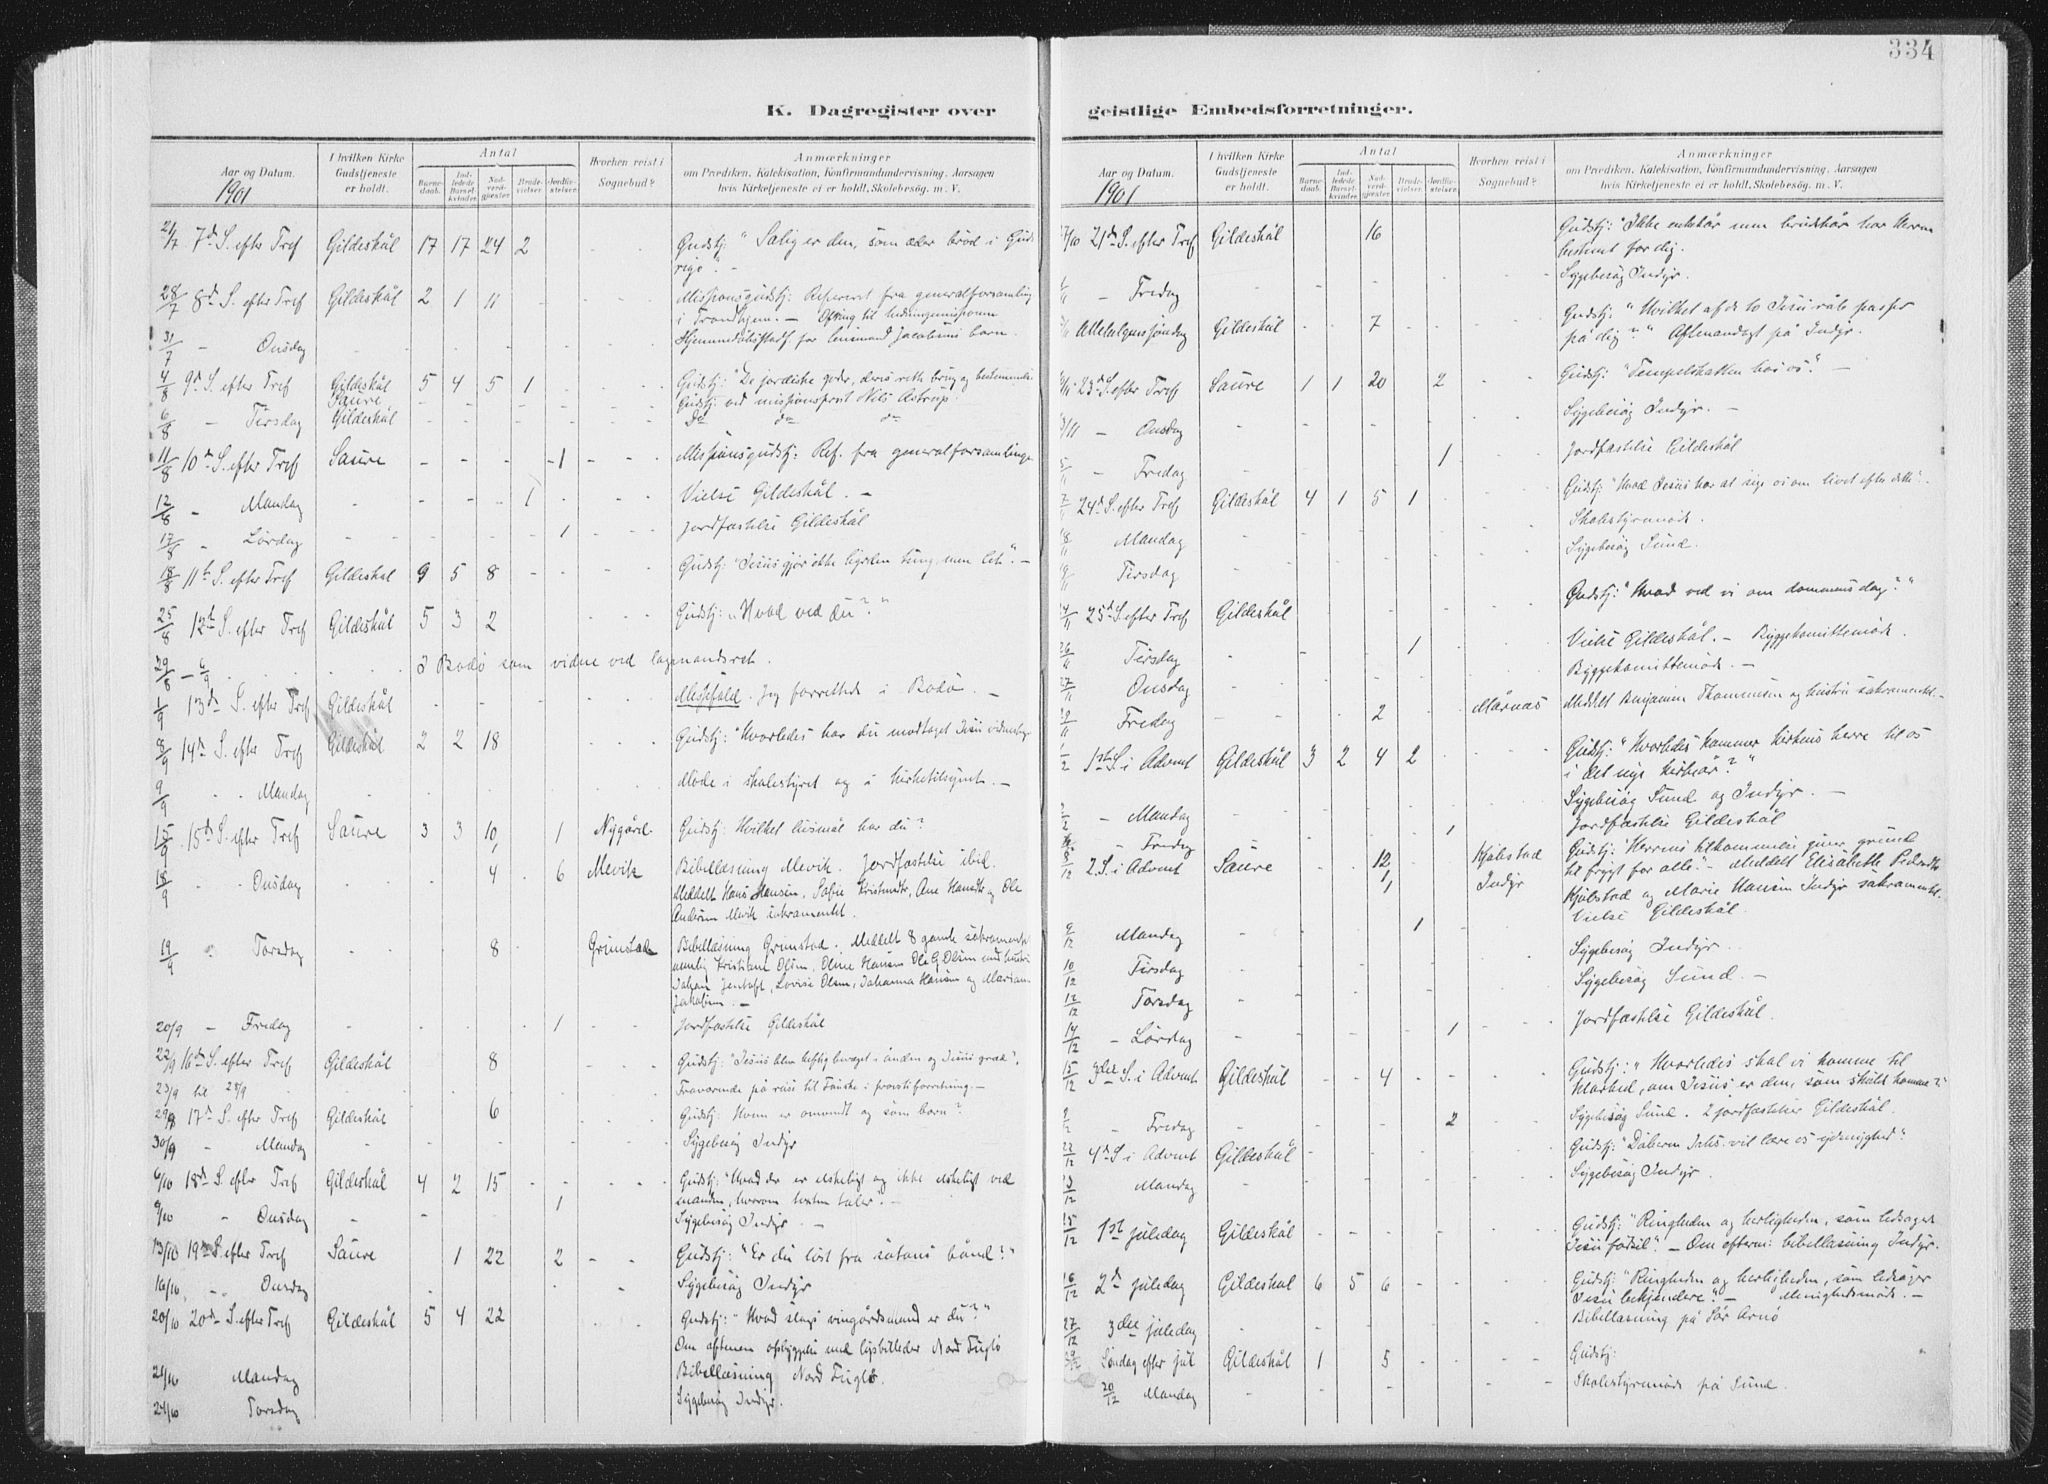 334
K. Dagregister over
geistlige Embedsforretninger.
Aar og Datum.
I hvilken Kirke Gudstjeneste er holdt.
Antal
Barnedaab.
Indledede Barselkvinder.
Nadverdgjester
Brudevielser
Jordfæstelser
Hvorhen reist i Sognebud?
Anmærkninger
om Prædiken, Katekisation, Konfirmandundervisning, Aarsagen
hvis Kirketjeneste ei er holdt, Skolebesøg. m. V.
1901
21/7 7d S. efter Tref Gildeskål 17 17 24 2 Gudstj: "Salig er den, som æder brød i Guds
rige". -
28/7 8d S. efter Tref Gildeskål 2 1 11 Missionsgudstj: Referat fra generalforsamling
i Trondhjem. - Ofring til hedningemissionen
31/7 - Onsdag Hjemmedåbsstadf for lensmand Jacobsens barn.
4/8 9d S. efter Tref Gildeskål 5 4 5 1 Gudstj: "De jordiske goder, deres rette brug og bestemmelse
Saure Gudstj: ved missionsprest Nils Astrup.
6/8 - Tirsdag Gildeskål Do do do
11/8 10d S. efter Tref Saure - - - - 1 Missionsgudstj: Ref. fra generalforsamlingen
12/8 - Mandag 1 Vielse Gildeskål. -
17/8 - Lørdag 1 Jordfæstelse Gildeskål
18/8 11te S. efter Tref Gildeskål 9 5 8 Gudstj: "Jesus gjør ikke byrden tung, men let". -
25/8 12te S. efter Tref Gildeskål 5 3 2 Gudstj: "Hvad ved du?"
29/8 - 6/9 I Bodø som vidne ved lagmandsret.
1/9 13d S. efter Tref Gildeskål Messefald. Jeg forrettede i Bodø. -
8/9 14d S. efter Tref Gildeskål 2 2 18 Gudstj: "Hvorledes har du modtaget Jesu
9/9 - Mandag Møde i skolestyret og i kirketilsynet. -
15/9 15d S. efter Tref Saure 3 3 10 1 Nygård. Gudstj: Hvilket livsmål har du?
18/9 - Onsdag 4 6 Mevik Bibellæsning Mevik. Jordfæstelse ibid.
Meddelt Hans Hansen, Sofie Kristensdtr, Ane Hansdtr og Ole
Andersen Mevik sakramentet.
19/9 - Torsdag 8 Grimstad Bibellæsning Grimstad. Meddelt 8 gamle sakramentet
nemlig Kristian Olsen, Oline Hansen Ole G. Olsen med hustru
Johan Jentoft, Lovise Olsen, Johanna Hansen og Marian
Jakobsen. -
20/9 - Fredag 1 Jordfæstelse Gildeskål
22/9 16d S. efter Tref Gildeskål 8 Gudstj: "Jesus blev heftig bevæget i ånden og Jesus græd".
23/9 til 28/9 Fraværende på reise til Fauske i provstiforretning. -
29/9 17d S. efter Tref Gildeskål 6 Gudstj: Hvem er omvendt og som barn?
30/9 - Mandag Sygebesøg Indyr
6/10 18d S. efter Tref Gildeskål 4 2 15 Gudstj: "Hvad der er elskeligt og ikke elskeligt ved
manden, hvorom texten taler". -
9/10 - Onsdag 1 Sygebesøg Indyr. -
13/10 19d S. efter Tref Saure 1 22 2 Gudstj: "Er du løst fra satans bånd?"
16/10 - Onsdag Sygebesøg Indyr
20/10 20d S. efter Tref Gildeskål 5 4 22 Gudstj: "Hvad slags vingårdsmand er du?"
Om aftenen opbyggelse med lysbilleder Nord Fuglø
21/10 Mandag Bibellæsning Nord Fuglø.
24/10 Torsdag Sygebesøg Indyr.
Aar og Datum.
I hvilken Kirke Gudstjeneste er holdt.
Antal
Barnedaab.
Indledede Barselkvinder.
Nadverdgjester
Brudevielser
Jordfæstelser
Hvorhen reist i Sognebud?
Anmærkninger
om Prædiken, Katekisation, Konfirmandundervisning, Aarsagen
hvis Kirketjeneste ei er holdt, Skolebesøg. m. V.
1901
27/10 21d S. efter Tref Gildeskål 16 Gudstj: "Ikke enkekår men brudekår har Herren
bestemt for dig.
1/11 - Fredag Sygebesøg Indyr.
3/11 Allehelgenssøndag Gildeskål 7 Gudstj: "Hvilket af de to Jesu råb passer
på dig?" Aftenandagt på Indyr.
10/11 23d S. efter Tref Saure 1 1 20 2 Gudstj: "Tempelskatten hos os". -
13/11 - Onsdag Sygebesøg Indyr. -
15/11 - Fredag 1 Jordfæstelse Gildeskål
17/11 24d S. efter Tref Gildeskål 4 1 5 1 Gudstj: "Hvad Jesus har at sige os om livet efter dette".
18/11 Mandag Skolestyremøde.
19/11 Tirsdag Sygebesøg Sund.
24/11 25d S. efter Tref Gildeskål Gudstj: "Hvad ved vi om dommens dag?"
26/11 Tirsdag 1 Vielse Gildeskål. - Byggekomittemøde.
27/11 Onsdag Byggekomittemøde. -
29/11 Fredag 2 Mårnæs Meddelt Benjamin Thomassen og hustru sakramentet. -
1/12 1ste S. i Advent Gildeskål 3 2 4 2 Gudstj: "Hvorledes kommer kirkens herre til os
i det nye kirkeår?"
2/12 - Mandag Sygebesøg Sund og Indyr. -
6/12 - Fredag 1 Jordfæstelse Gildeskål
8/12 2. S. i Advent Saure 12, 1 Kjelstad Indyr Gudstj: Herrens tilkommelse giver grund
til frygt for alle". - Meddelt Elisabeth Pedersdtr
Kjelstad og Marie Hansen Indyr sakramentet.
9/12 Mandag 1 Vielse Gildeskål.
10/12 Tirsdag Sygebesøg Indyr.
12/12 Torsdag Sygebesøg Sund. -
14/12 - Lørdag 1 Jordfæstelse Gildeskål.
15/12 3die S. i Advent Gildeskål 4 Gudstj: "Hvorledes skal vi komme til
klarhed, om Jesus er den, som skulde komme?"
- Fredag 2 Sygebesøg Sund. 2 jordfæstelser Gildeskål.
22/12 4d S i Advent Gildeskål Gudstj: "Døberen Johs. vil lære os ydmyghed".
23/12 Mandag Sygebesøg Indyr.
25/12 1ste juledag Gildeskål Gudstj: "Ringheden og herligheden, som ledsaget
Jesu fødsel". - Om efterm: bibellæsning Indyr.
26/12 2d juledag Gildeskål 6 5 6 Gudstj: "Ringheden og herligheden, som ledsager
Jesu bekjendere". - Menighedsmøde. -
27/12 3die juledag Bibellæsning på Sør Arnø
29/12 Søndag efter jul Gildeskål 1 5 Gudstj:
30/12 Mandag Skolestyremøde på Sund.